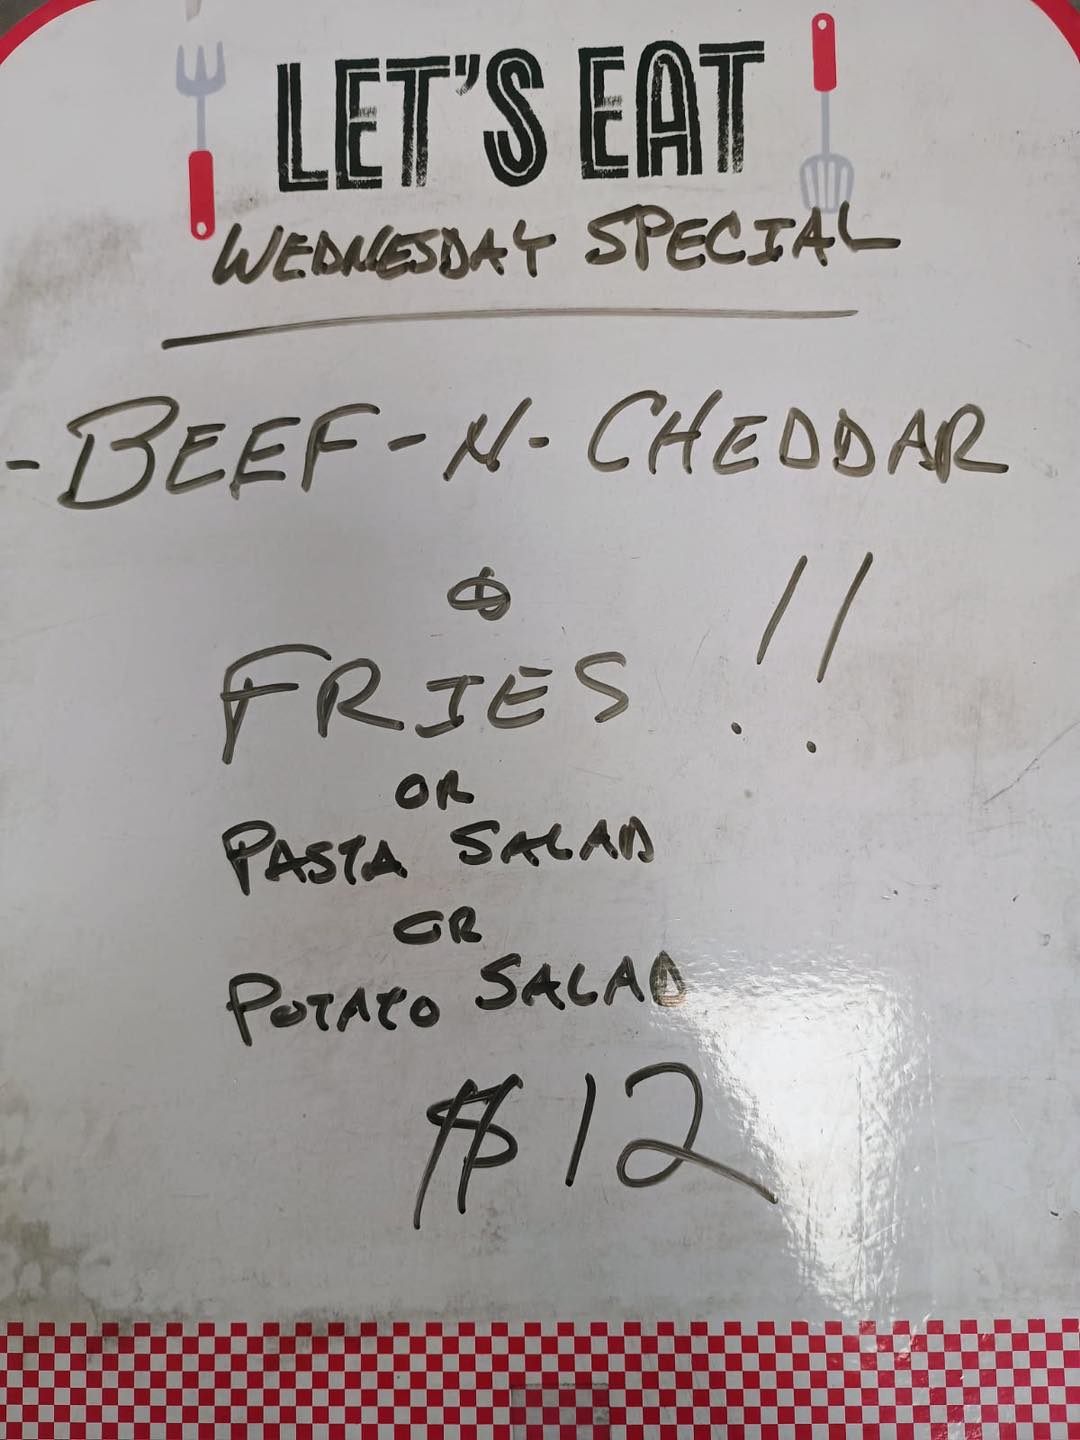 LET'S EAT
WEDNESDAY SPECIAL
-BEEF-N-CHEDDAR
&
FRIES !!
OR
PASTA SALAD
OR
POTATO SALAD
$12